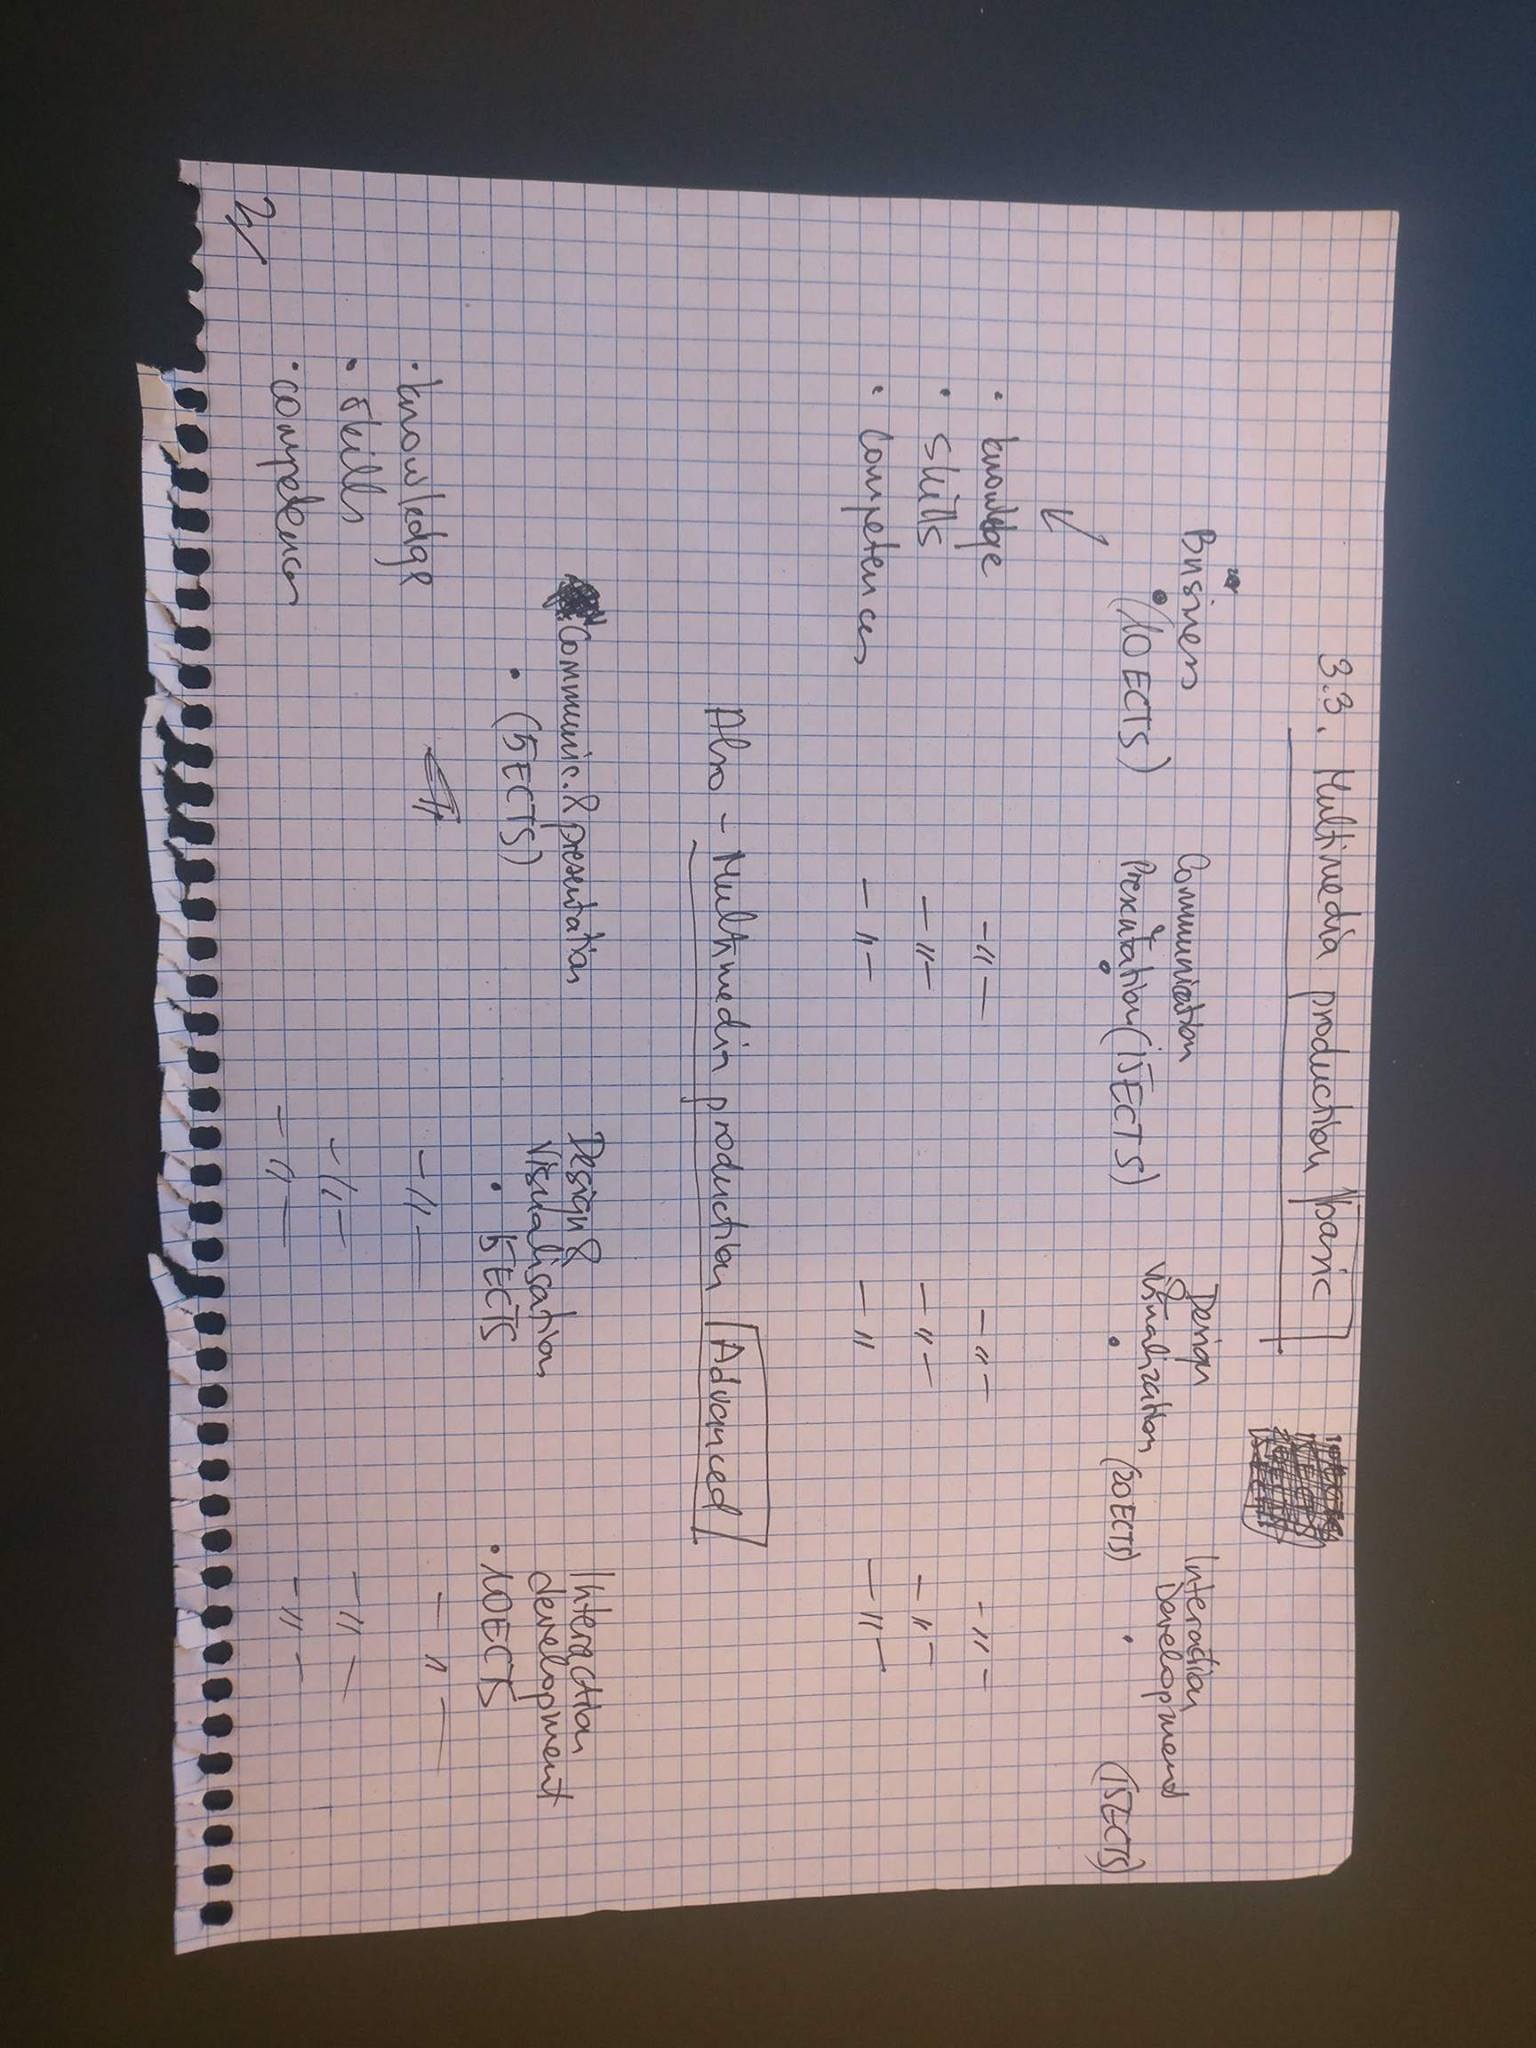 3.3. Multimedia production basic
Business
(10ECTS)
Communication
Presentation (15ECTS)
Design
Visualization (20ECTS)
Interaction
Development
(15ECTS)
• knowledge -〃- -〃- -〃-
• Skills -〃- -〃- -〃-
• Competences -〃- -〃 -〃-
Also - Multimedia production Advanced
Communic. & presentation
• (5ECTS)
Design &
Visualisation
• 5ECTS
Interaction
development
• 10ECTS
• knowledge -〃- -〃-
• skills -〃- -〃-
• competences -〃- -〃-